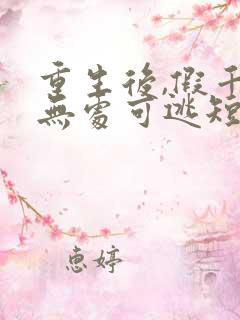 重生後,假千
無處可逃短
惠婷